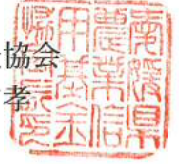 協会
孝
愛媛県
農業信
用基金
協会之印